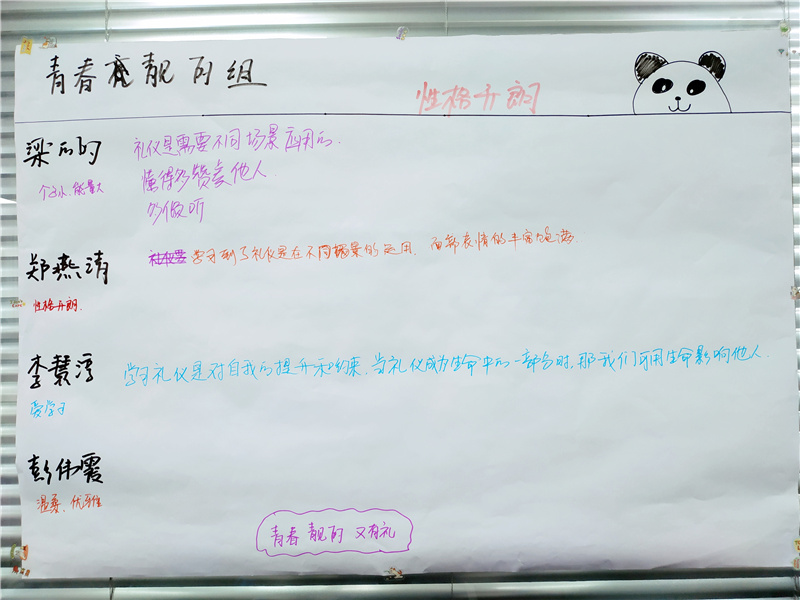 青春靓丽组
性格开朗
梁丽
礼仪是需要不同场景应用的.
个子小、能量大
懂得多赞美他人
多倾听
郑燕清
学习到了礼仪是在不同场景的运用, 面部表情的丰富饱满.
性格开朗.
李慧
学习礼仪是对自我的提升和约束, 当礼仪成为生命中的一部分时, 那我们可用生命影响他人.
爱学习
彭伟霞
温柔、优雅
青春 靓丽 又有礼